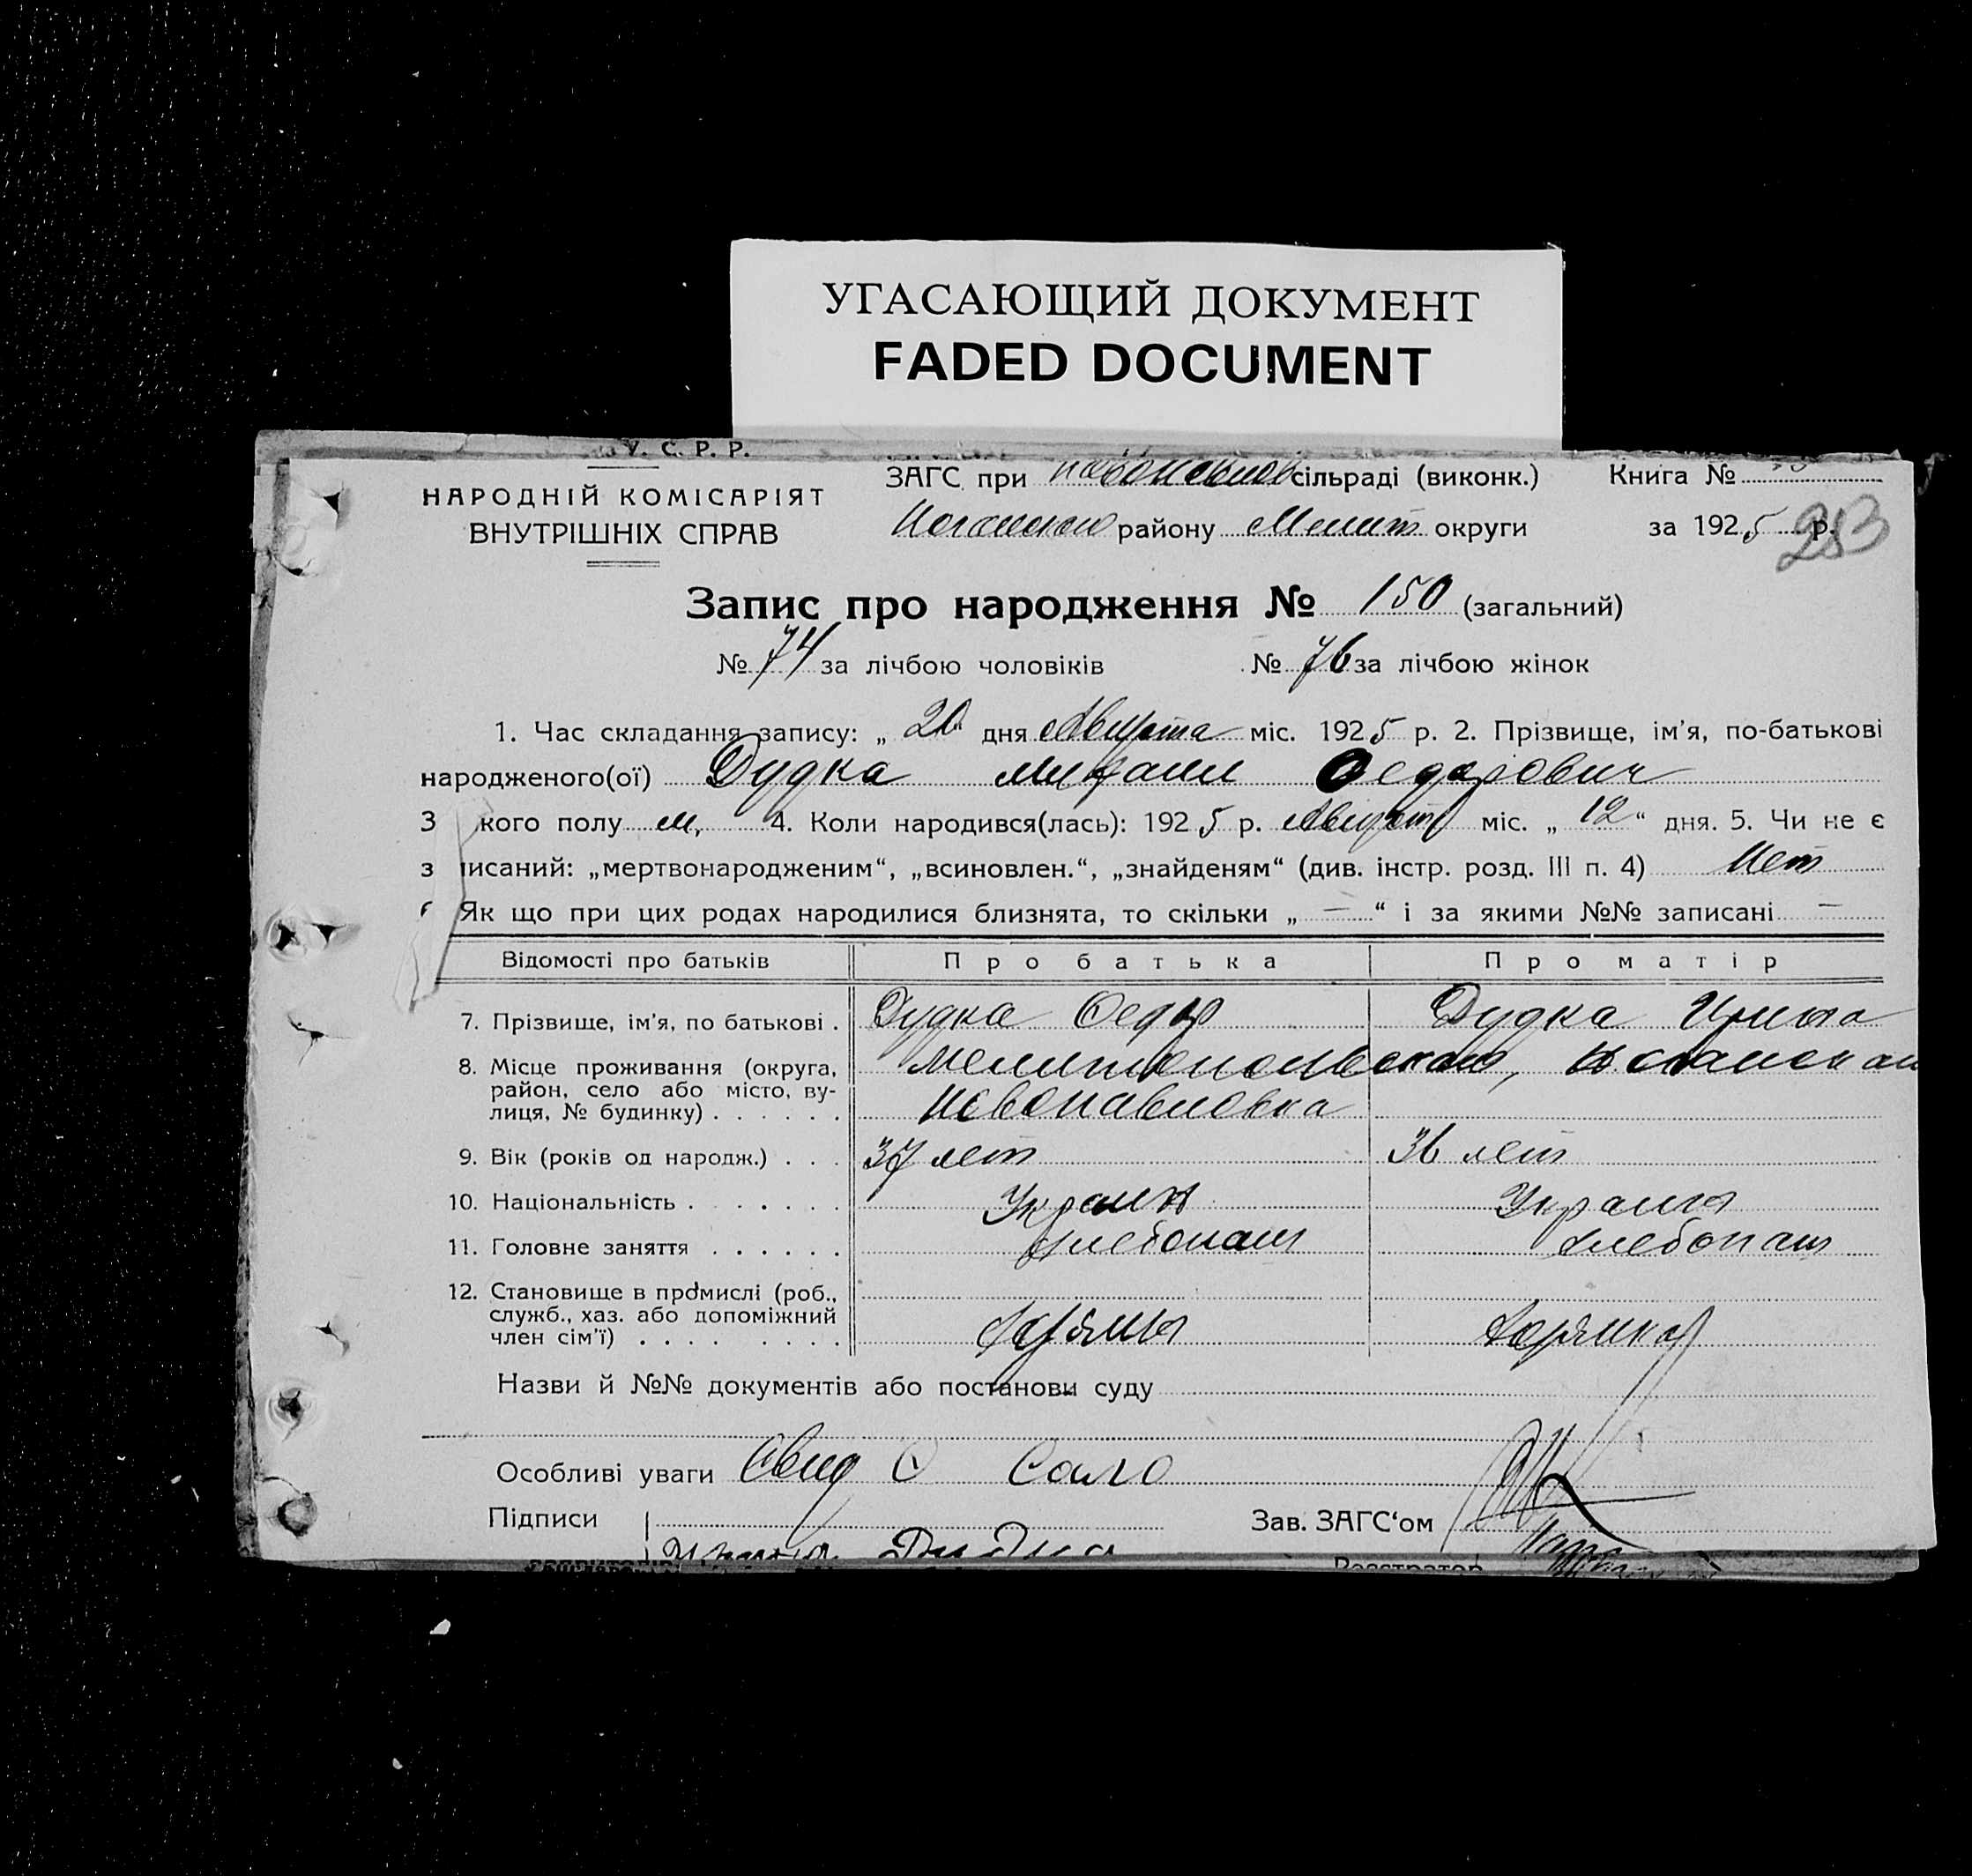 УГАСАЮЩИЙ ДОКУМЕНТ
FADED DOCUMENT
У. С. Р. Р.
НАРОДНІЙ КОМІСАРІЯТ
ВНУТРІШНІХ СПРАВ
ЗАГС при сільраді (виконк.)
району Мелит округи
Книга №
за 1925 р.
283
Запис про народження № 150 (загальний)
№ 74 за лічбою чоловіків № 76 за лічбою жінок
1. Час складання запису: „ 20 дня Августа міс. 1925 р. 2. Прізвище, ім'я, по-батькові
народженого(ої) Дудка Михаил Федорович
3 кого полу м. 4. Коли народився(лась): 1925 р. Август міс. „ 12 “ дня. 5. Чи не є
з писаний: „мертвонародженим“, „всиновлен.“, „знайденям“ (див. інстр. розд. III п. 4) Нет
Як що при цих родах народилися близнята, то скільки „ — “ і за якими №№ записані —
Відомості про батьків Про батька Про матір
7. Прізвище, ім'я, по батькові . Дудка Федор Дудка
8. Місце проживання (округа, район, село або місто, вулиця, № будинку) . . . . . . Мелитопольского,
Новопавловка
9. Вік (років од народж.) . . . 37 лет 36 лет
10. Національність . . . . . . .
11. Головне заняття . . . . . . хлебопаш хлебопаш
12. Становище в промислі (роб., служб., хаз. або допоміжний член сім'ї) . . . . . . . .
Назви й №№ документів або постанови суду
Особливі уваги
Підписи
Зав. ЗАГС'ом
Реєстратор